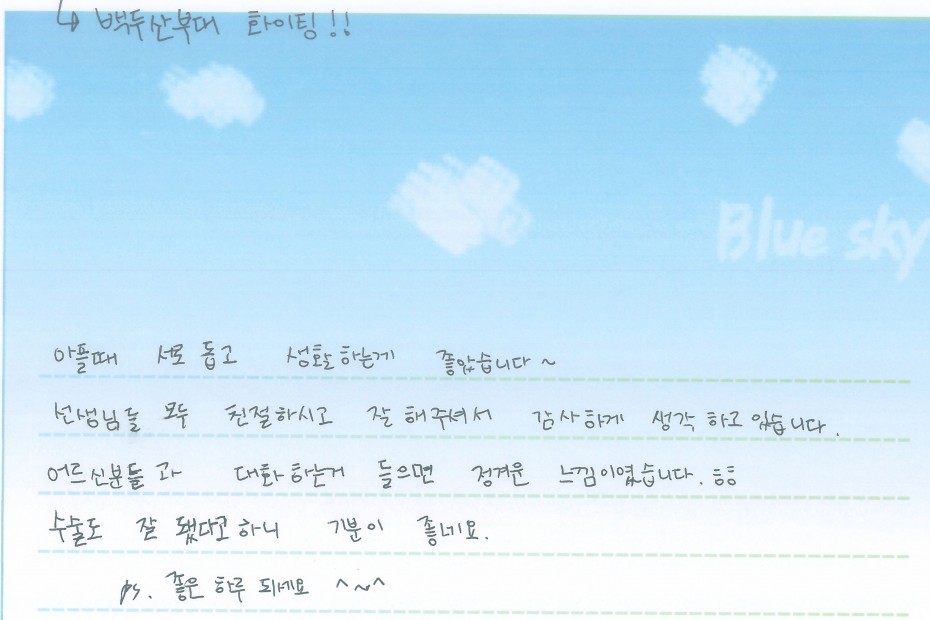 ↳ 백두산부대 화이팅!!
Blue sky
아플때 서로 돕고 생활하는게 좋았습니다~
선생님들 모두 친절하시고 잘 해주셔서 감사하게 생각 하고 있습니다.
어르신분들과 대화하는거 들으면 정겨운 느낌이였습니다. ㅎㅎ
수술도 잘 됐다고하니 기분이 좋네요.
ps. 좋은 하루 되세요 ^~^